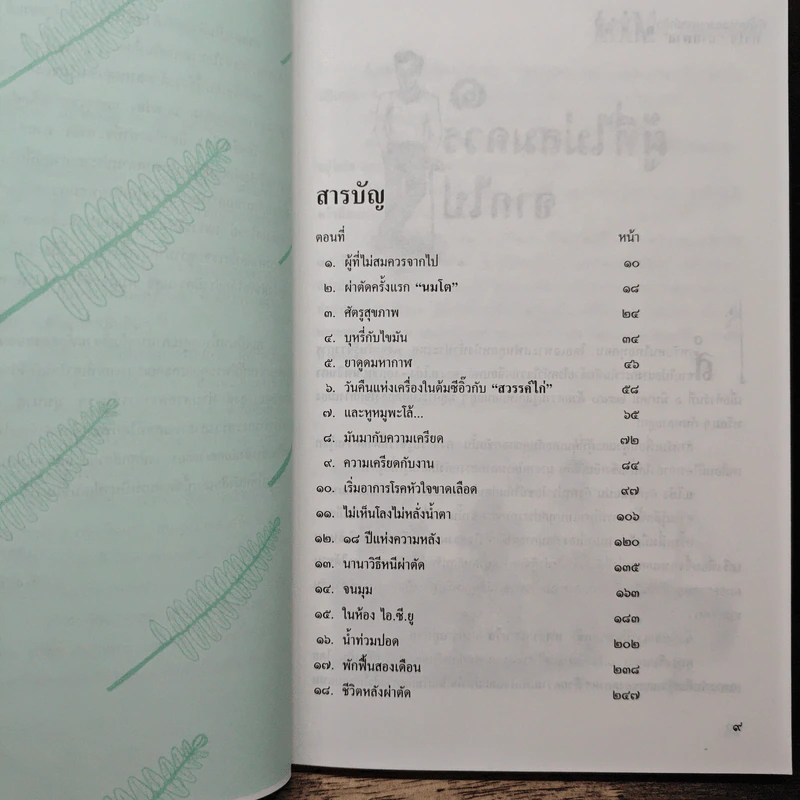 สารบัญ
ตอนที่ หน้า
๑. ผู้ที่ไม่สมควรจากไป ๑๐
๒. ผ่าตัดครั้งแรก “นมโต” ๑๘
๓. ศัตรูสุขภาพ ๒๔
๔. บุหรี่กับไขมัน ๓๔
๕. ยาดูดมหากาฬ ๔๖
๖. วันคืนแห่งเครื่องในต้มซีอิ๊วกับ “สวรรค์ไก่” ๕๘
๗. และหูหมูพะโล้... ๖๕
๘. มันมากับความเครียด ๗๒
๙. ความเครียดกับงาน ๘๔
๑๐. เริ่มอาการโรคหัวใจขาดเลือด ๙๗
๑๑. ไม่เห็นโลงไม่หลั่งน้ำตา ๑๐๖
๑๒. ๑๘ ปีแห่งความหลัง ๑๒๐
๑๓. นานาวิธีหนีผ่าตัด ๑๓๕
๑๔. จนมุม ๑๖๓
๑๕. ในห้อง ไอ.ซี.ยู ๑๘๓
๑๖. น้ำท่วมปอด ๒๐๒
๑๗. พักฟื้นสองเดือน ๒๓๘
๑๘. ชีวิตหลังผ่าตัด ๒๔๗
๙